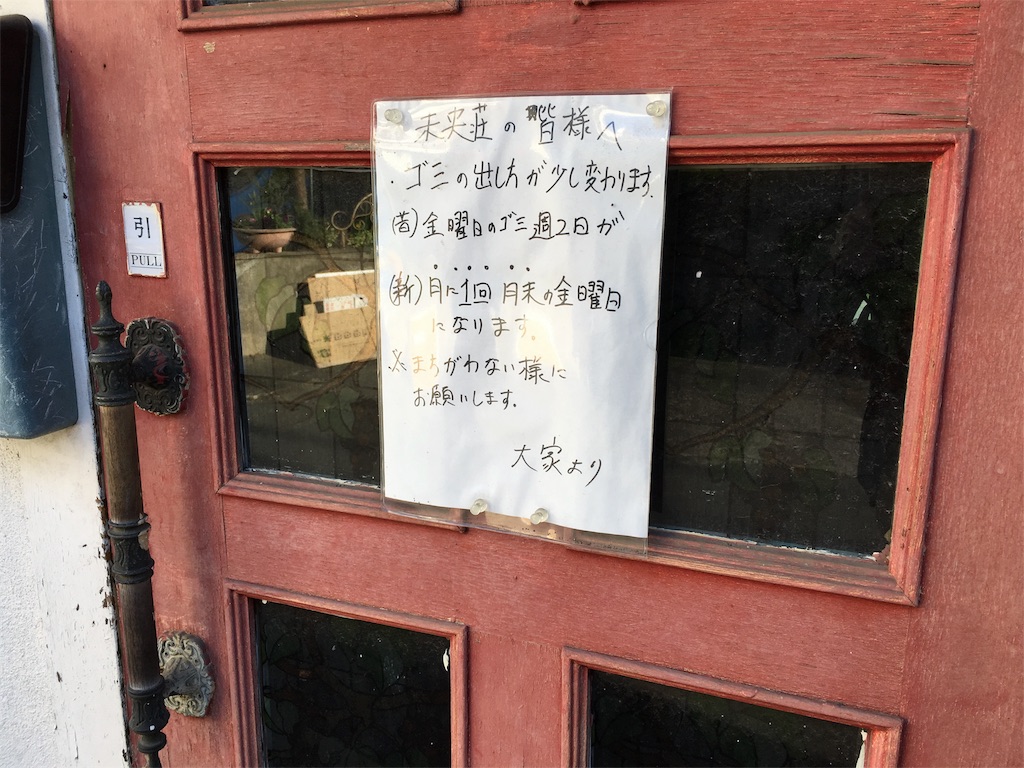 引
PULL
未央荘の皆様へ
・ゴミの出し方が少し変わります。
(昔)金曜日のゴミ週2日が
(新)月に1回 月末の金曜日
になります。
※まちがわない様に
お願いします。
大家より